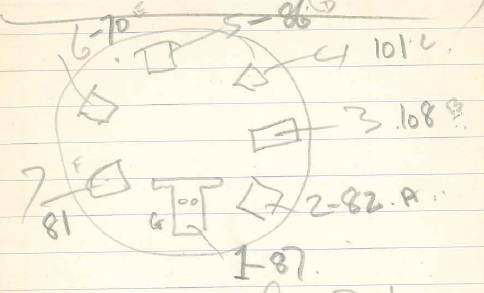 6-70 E
5-86 D
4 101 C
3 108 B
7 F
81
G
2-82.A.
1-87.